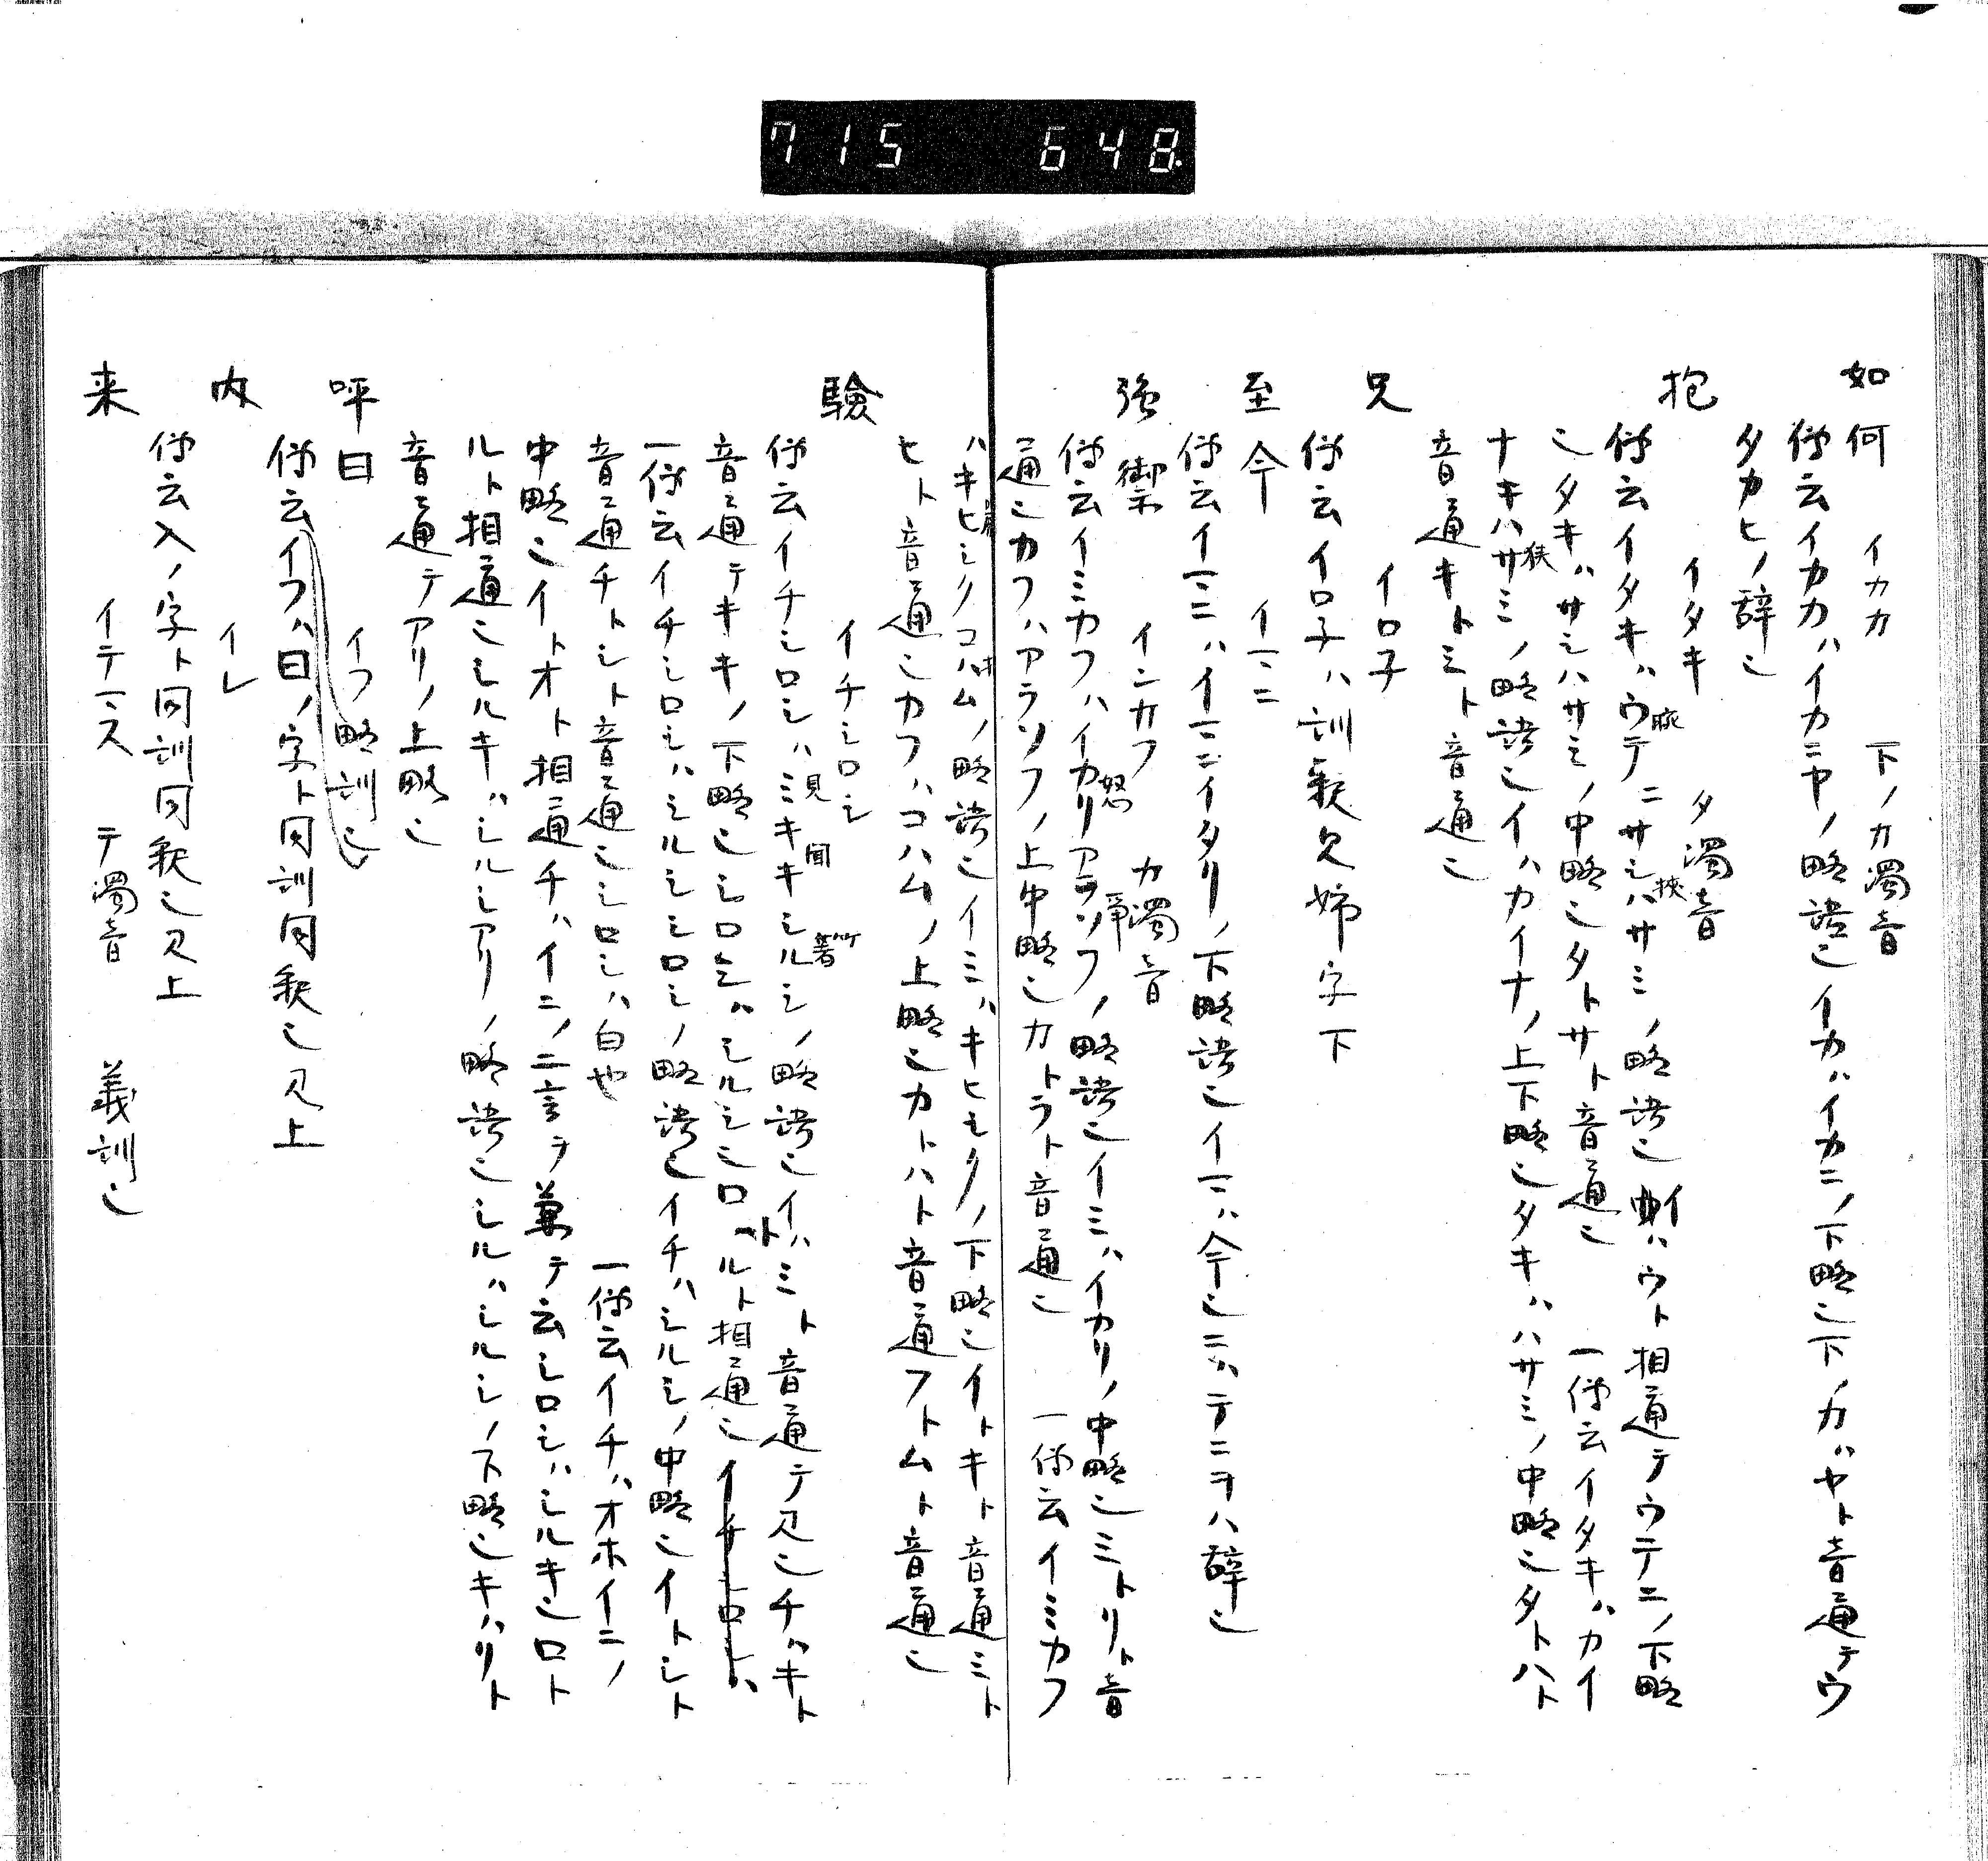 715 648.
如何 イカカ 下ノカ濁音
傳云イカカハイカニヤノ略語也イカハイカニノ下略也下ノカハヤト音通テウ
タカヒノ辞也
抱 イタキ タ濁音
傳云イタキハウテ腕ニサシハサミ挾ノ略語也イハウト相通テウテニノ下略
也タキハサシハサミノ中略也タトサト音通也 一傳云イタキハカイ
ナキハサミ狭ノ略語也イハカイナノ上下略也タキハハサミノ中略也タトハト
音通キトミト音通也
兄 イロ子
傳云イロ子ハ訓釈見姉字下
至今 イマニ
傳云イマニハイマニイタリノ下略語也イマハ今也ニハテニヲハ辞也
強禦 インカフ カ濁音
傳云イミカフハイカリ怒アラソフ争ノ略語也イミハイカリノ中略也ミトリト音
通也カフハアラソフノ上中略也カトラト音通也 一傳云イミカフ
ハキヒシクコハムノ略語也イミハキヒシクノ下略也イトキト音通ミト
ヒト音通也カフハコハムノ上略也カトハト音通フトムト音通也
驗 イチシロシ
傳云イチシロシハミキキ見聞シルシ箸ノ略語也イハミト音通テ見也チハキト
音通テキキノ下略也シロシハシルシ也ロトルト相通也イチシロシハ
一傳云イチシロシハシルシシロシノ略語也イチハシルシノ中略也イトシト
音通チトシト音通也シロシハ白也 一傳云イチハオホイニノ
中略也イトオト相通チハイニノ二言ヲ兼テ云シロシハシルキ也ロト
ルト相通也シルキハシルシアリノ略語也シルハシルシノ下略也キハリト
音通テアリノ上略也
呼曰 イフ略訓也
傳云イフハ曰ノ字ト同訓同釈也見上
内 イレ
傳云入ノ字ト同訓同釈也見上
来 イテマス テ濁音 義訓也